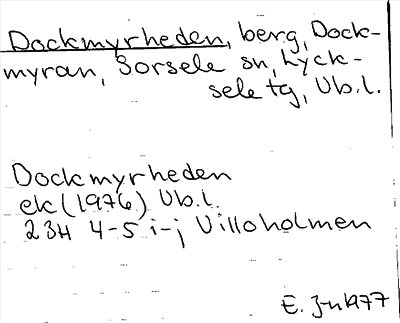 Dockmyrheden, berg, Dock-
myran, Sorsele sn, Lyck-
sele tg, Vb.l.
Dockmyrheden
ek (1976) Vb.l.
23H 4-5 i-j Villoholmen
E. 1977